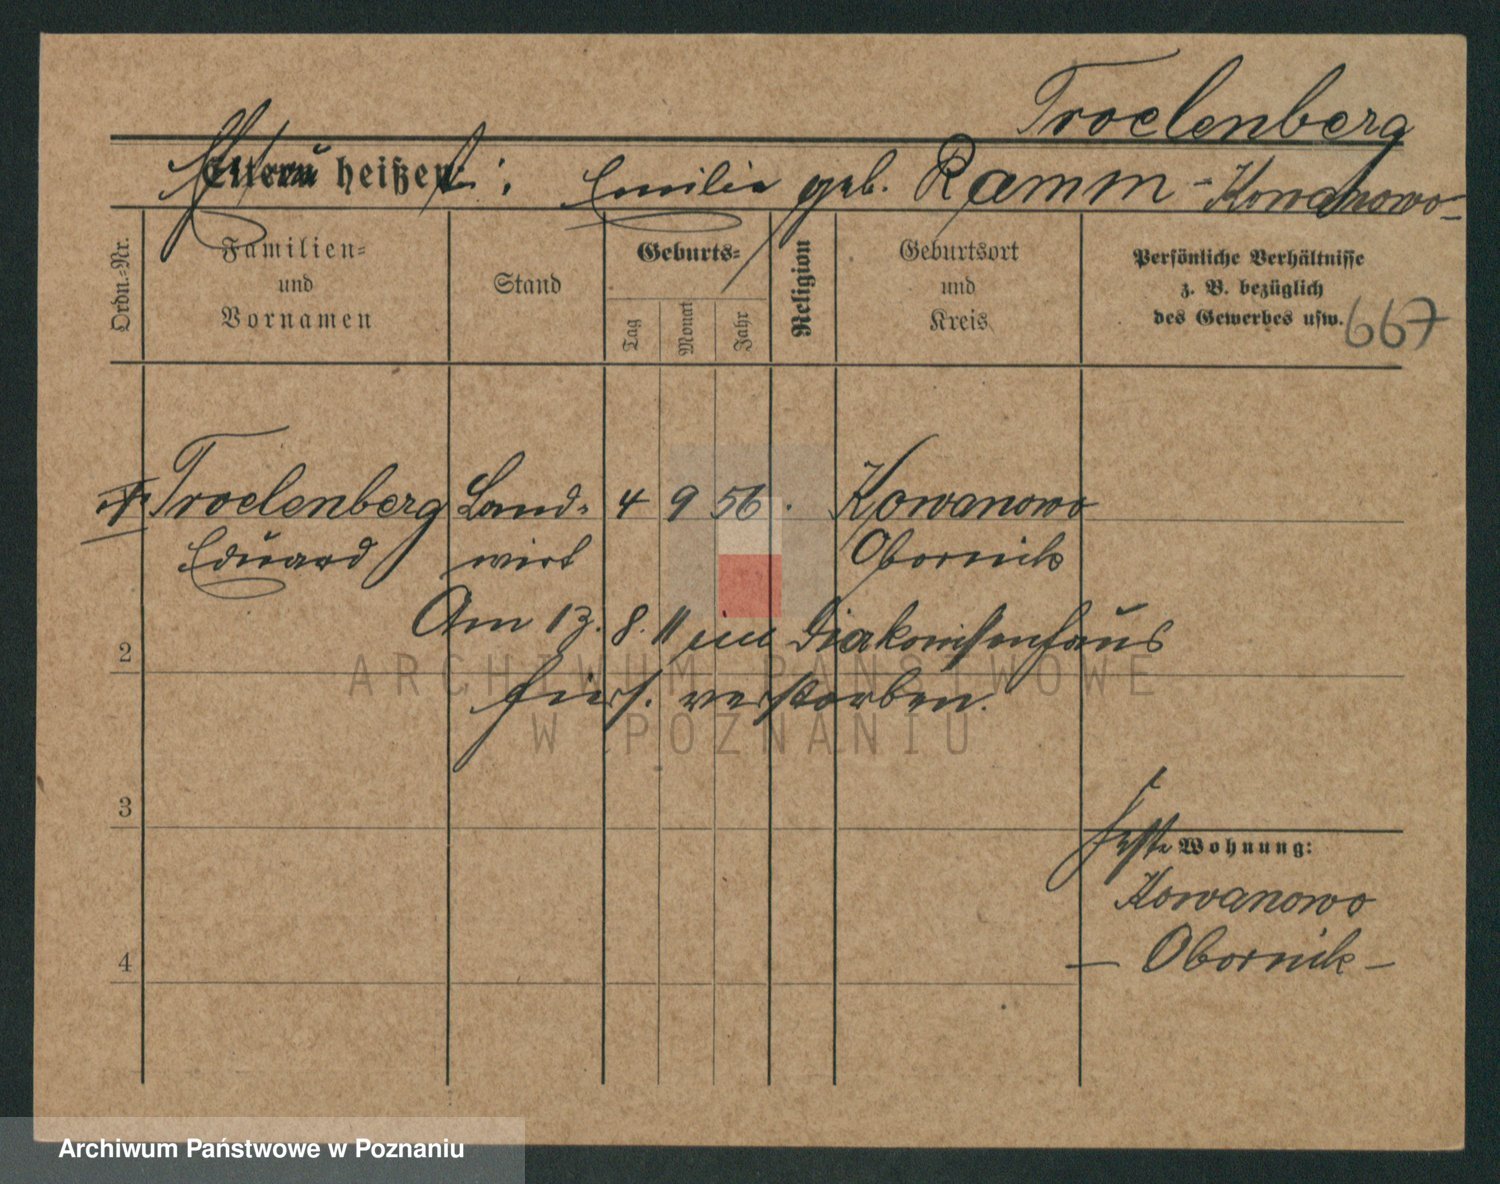 Troelenberg
Eltern heißen:
Emilie geb. Ramm - Kowanowo -
Ordn.-Nr.
Familien-
und
Vornamen
Stand
Geburts-
Tag
Monat
Jahr
Religion
Geburtsort
und
Kreis
Persönliche Verhältnisse
z. B. bezüglich
des Gewerbes usw.
667
Troelenberg Land- 4 9 56. Kowanowo
Eduard wirt Obornik
Am 13. 8. 11 im Diakonissenhaus
2
hies. verstorben.
ARCHIWUM PAŃSTWOWE
W POZNANIU
3
feste Wohnung:
Kowanowo
4
— Obornik —
Archiwum Państwowe w Poznaniu